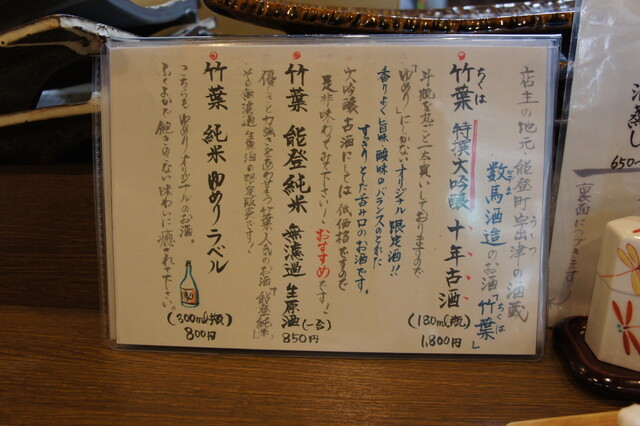 店主の地元、能登町宇出津の酒蔵
うしつ
数馬酒造のお酒「竹葉」
かずま
ちくは
竹葉 特撰大吟醸 十年古酒
ちくは
斗瓶を丸ごと一本買いしておりますので
(180ml瓶)
1,800円
「ゆめり」にしかないオリジナル限定酒!!
香りよく旨味 酸味のバランスのとれた
すっきりとした呑み口のお酒です。
大吟醸古酒にしては低価格ですので
是非味わってみて下さい! おすすめです!
竹葉 能登純米 無濾過生原酒
(一合)
850円
優しさと力強さをあわせもつ竹葉人気のお酒「能登純米」
その無濾過生原酒の限定版です!
竹葉 純米 ゆめりラベル
(300ml瓶)
800円
こちらも ゆめりオリジナルのお酒。
ふくよかで飽きのこない味わいに癒されて下さい。
酒蒸し
650
裏面につづきます